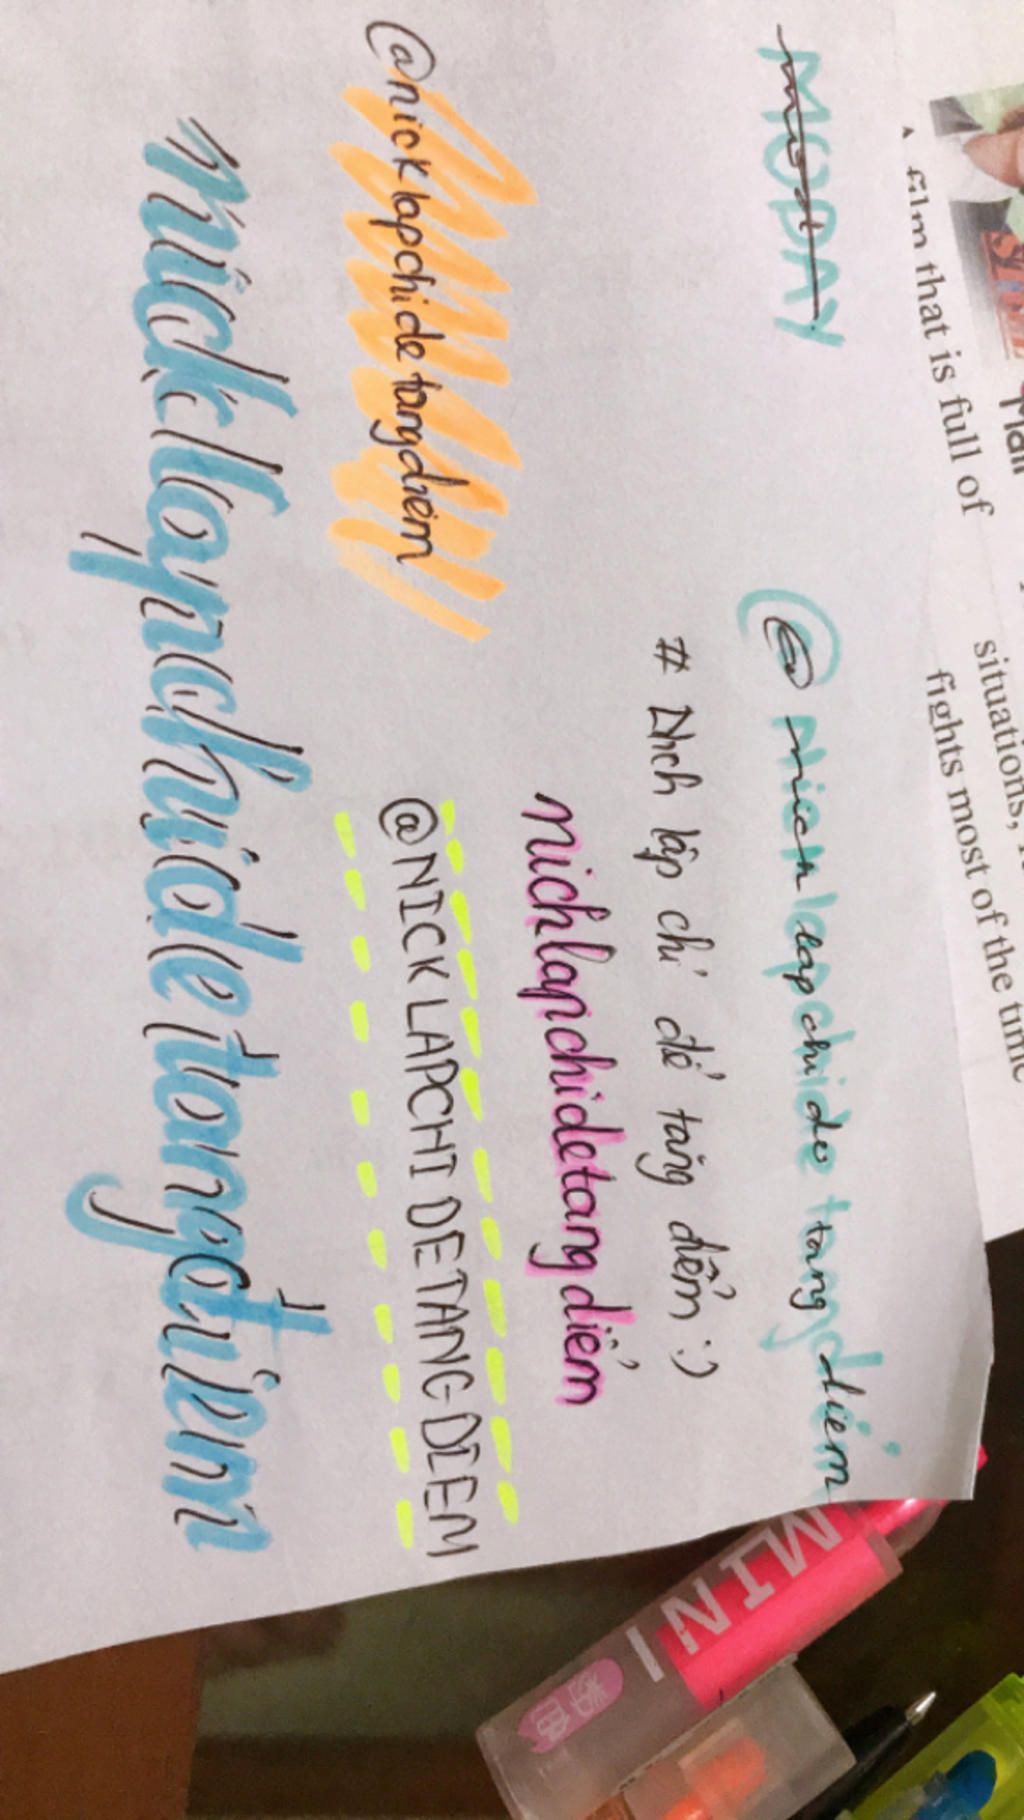 film that is full of
situations,
fights most of the time
MODAY
@nichlapchidetangdiem
# Nich lập chỉ để tăng điểm :)
nichlapchidetangdiểm
@nicklapchidetangdiem
@NICKLAPCHIDETANGDIEM
nicklapchidetangdiem
MINI